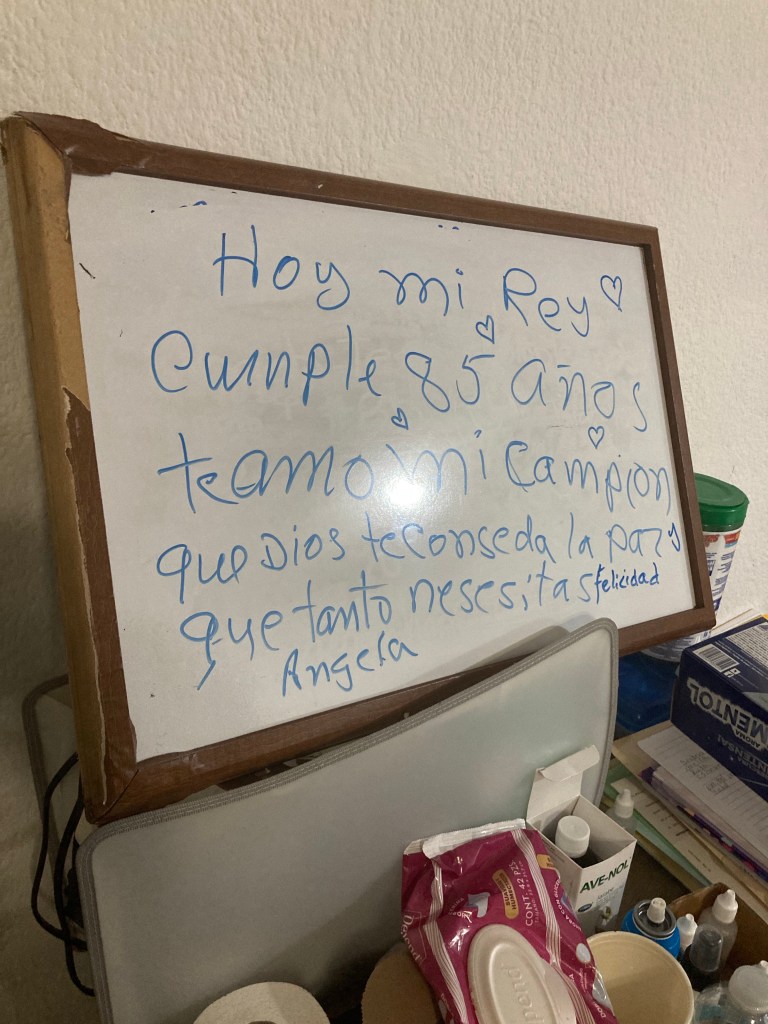 Hoy mi Rey
Cumple 85 años
te amo mi Campion
que Dios te conseda la paz y
que tanto nesesitas felicidad
Angela
MENTOL
AVE-NOL
CONT. 42 PZ